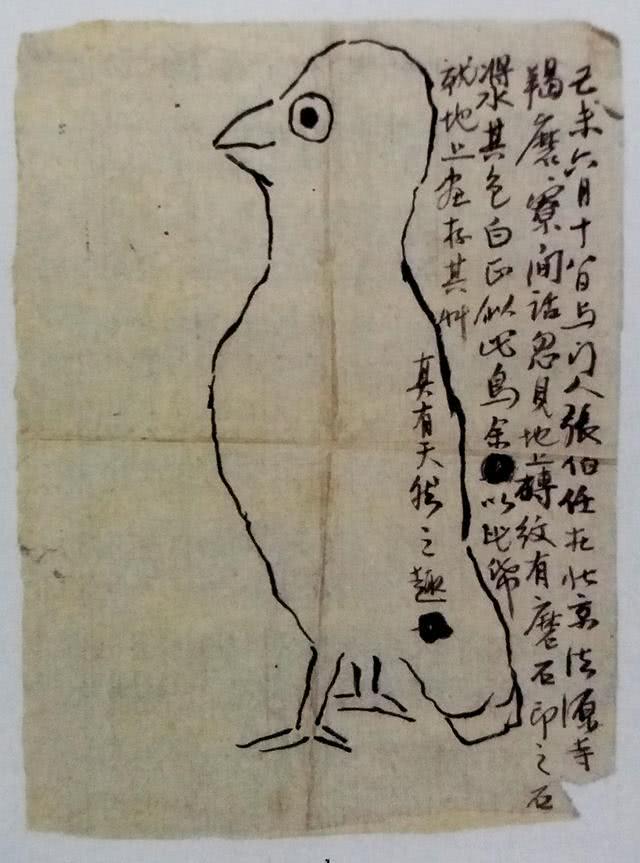 己未六月十八日与门人張伯任在北京法源寺
羯磨寮間話忽見地上磚紋有磨石印之石
漿其色白正似此鳥余以此帋
就地上畫存其艸
真有天然之趣